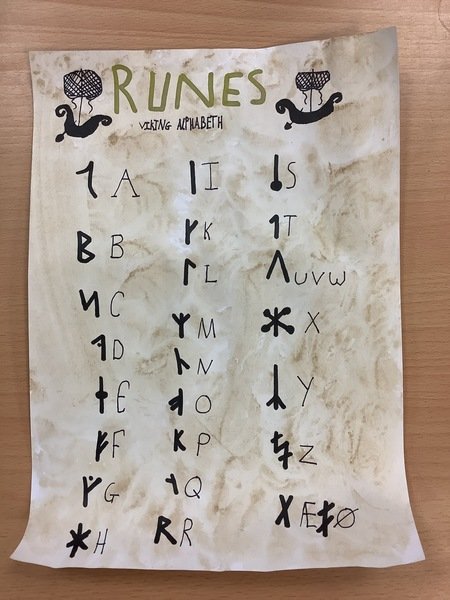 RUNES
VIKING ALPHABETH
ᛐ A
ᛒ B
ᛋ C
ᛑ D
ᛂ E
ᚠ F
ᚵ G
ᚼ H
ᛁ I
ᚴ K
ᛚ L
ᛘ M
ᚿ N
ᚮ O
ᛕ P
ᛩ Q
ᚱ R
ᛍ S
ᛐ T
ᚢ UVW
ᚼ X
ᛦ Y
ᛎ Z
Æ ᚯ Ø